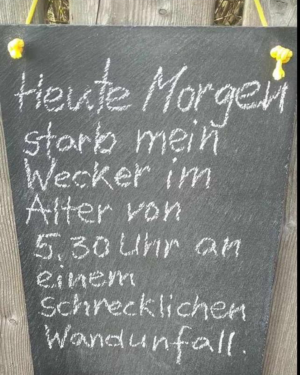 Heute Morgen
starb mein
Wecker im
Alter von
5.30 Uhr an
einem
schrecklichen
Wandunfall.